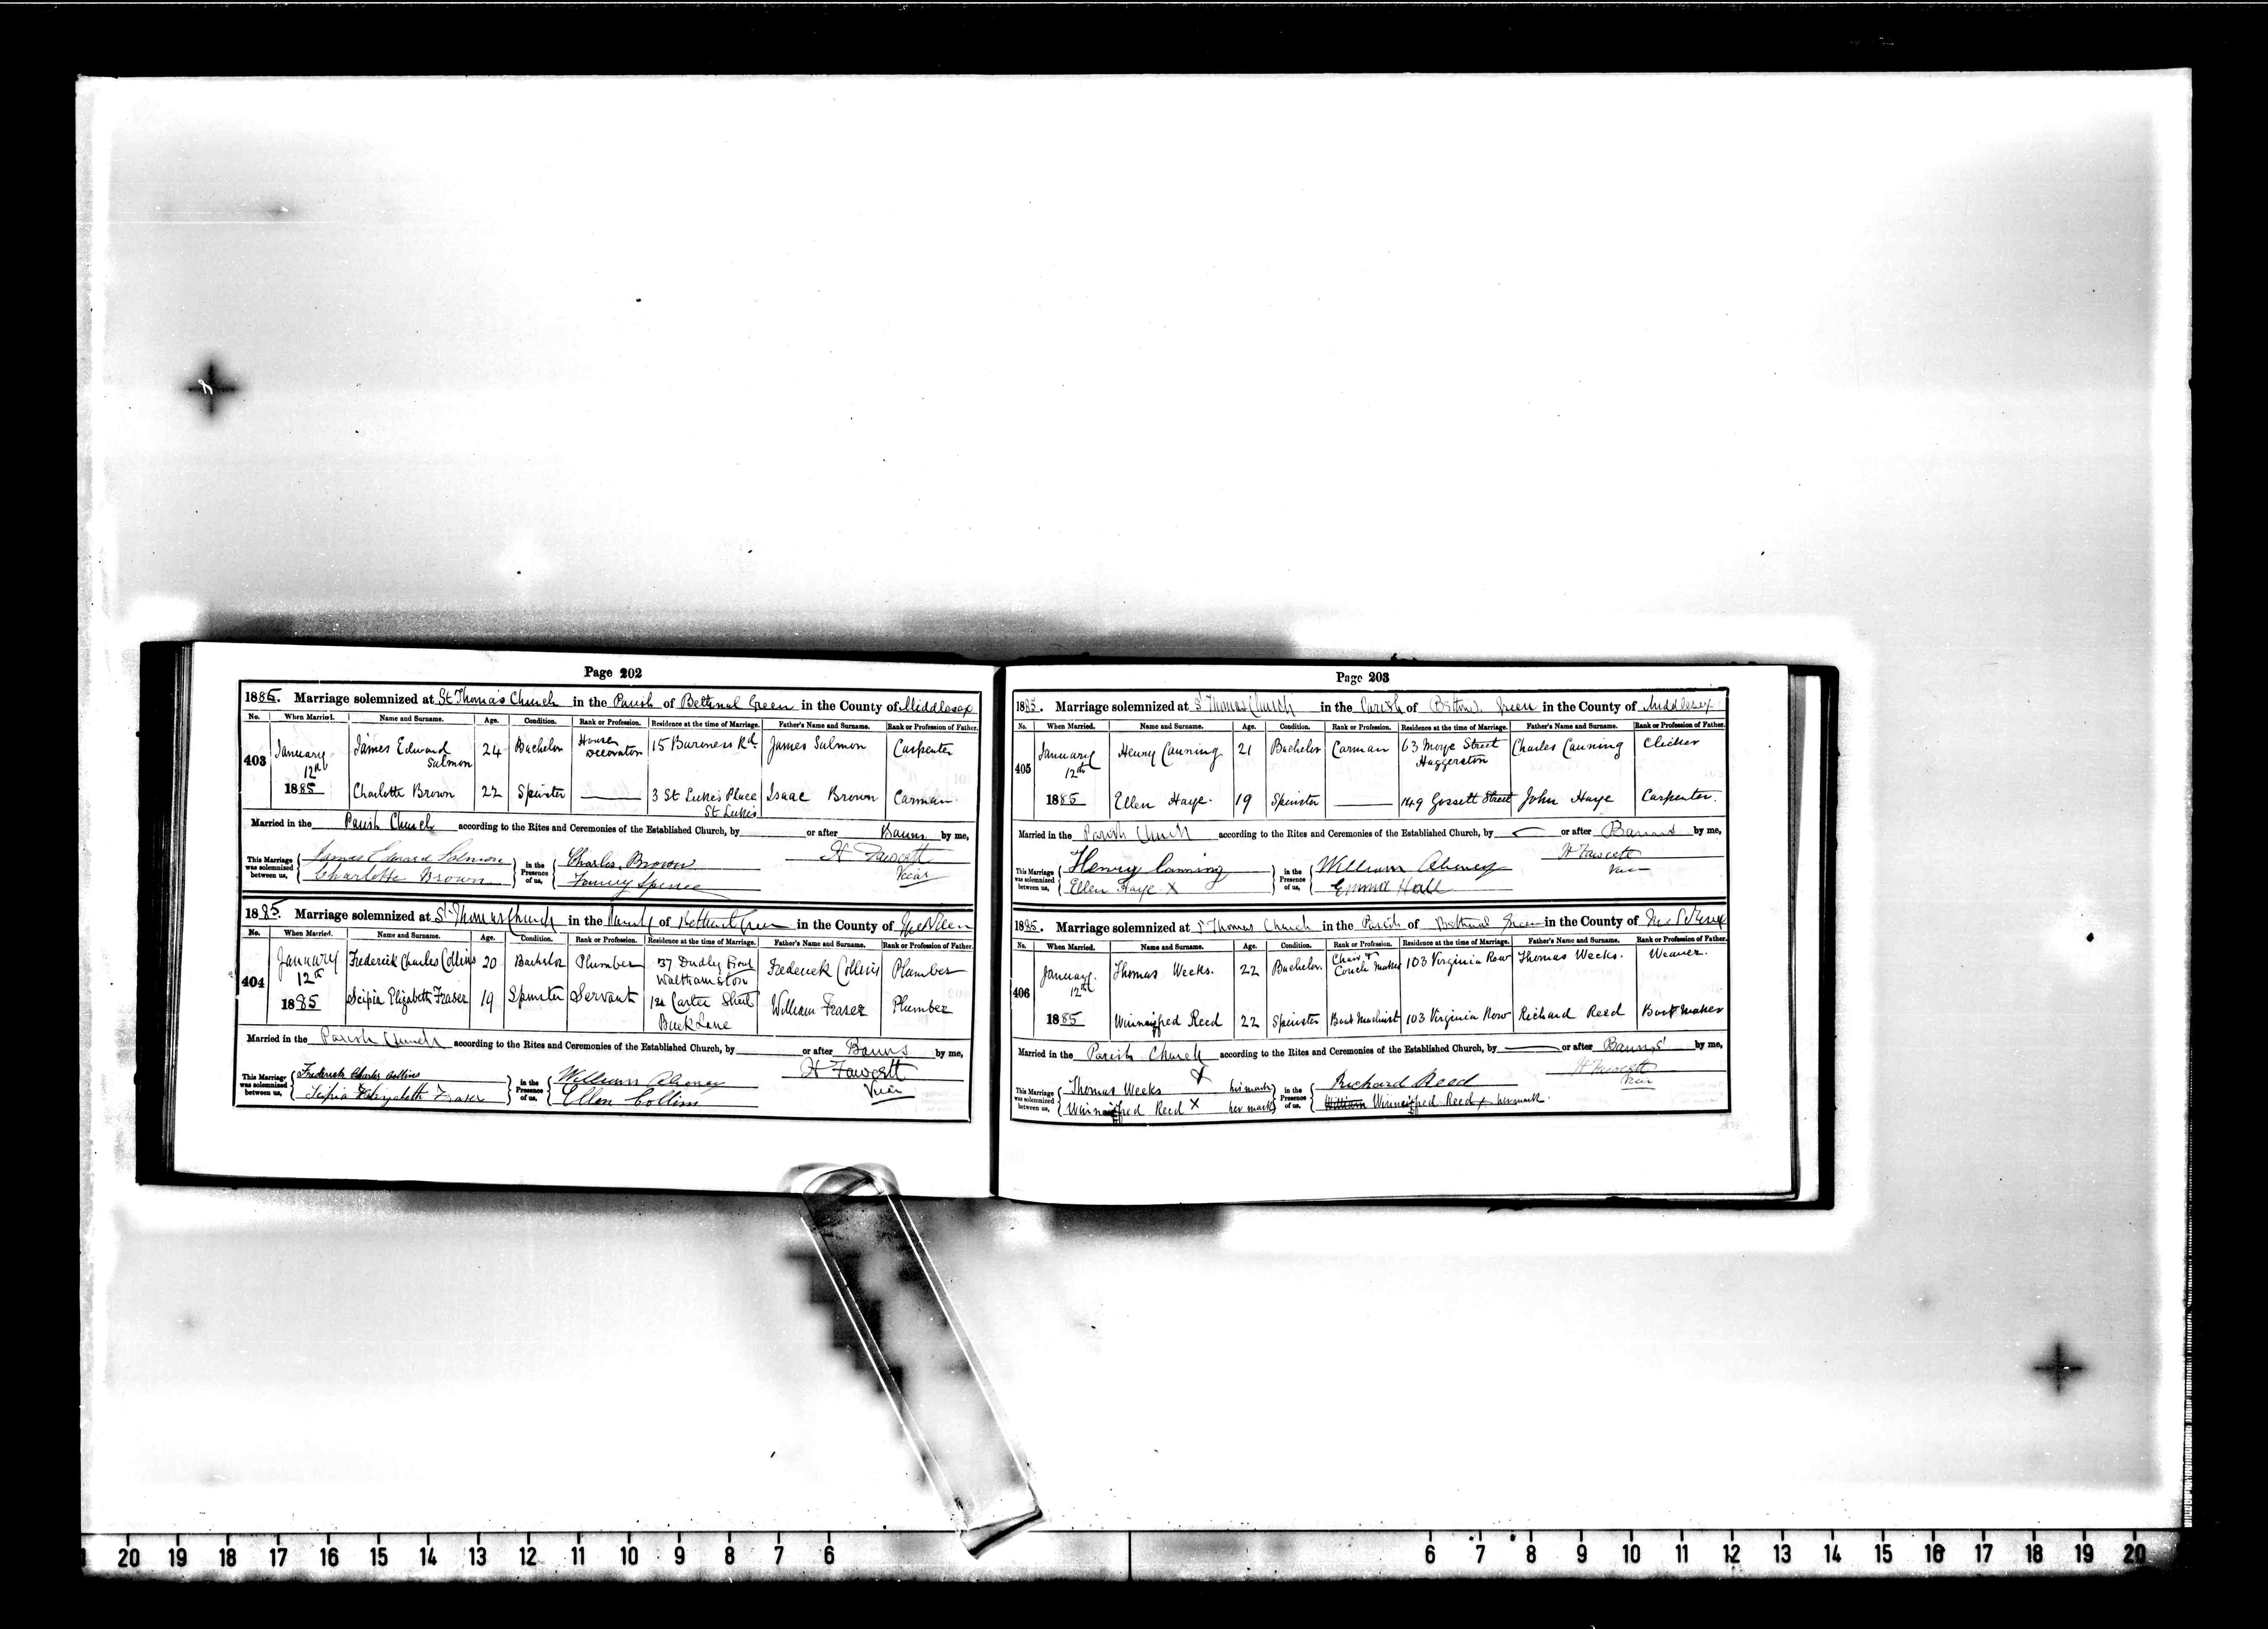 Page 202
1885. Marriage solemnized at St Thomas's Church in the Parish of Bethnal Green in the County of Middlesex
No. When Married. Name and Surname. Age. Condition. Rank or Profession. Residence at the time of Marriage. Father's Name and Surname. Rank or Profession of Father.
403 January 12th 1885
James Edward Salmon 24 Bachelor House Decorator 15 Rd. James Salmon Carpenter
Charlotte Brown 22 Spinster 3 St Luke's Place St Luke's Isaac Brown Carman
Married in the Parish Church according to the Rites and Ceremonies of the Established Church, by or after Banns by me,
This Marriage was solemnized between us, James Edward Salmon Charlotte Brown in the Presence of us, Charles Brown Fanny Spence H Fawcett Vicar
1885. Marriage solemnized at St Thomas Church in the Parish of Bethnal Green in the County of
No. When Married. Name and Surname. Age. Condition. Rank or Profession. Residence at the time of Marriage. Father's Name and Surname. Rank or Profession of Father.
404 January 12th 1885
Frederick Charles Collins 20 Bachelor Plumber 37 Dudley Road Walthamstow Frederick Collins Plumber
Elizabeth Fraser 19 Spinster Servant Carter Street Buck Lane William Fraser Plumber
Married in the Parish Church according to the Rites and Ceremonies of the Established Church, by or after Banns by me,
This Marriage was solemnized between us, Frederick Charles Collins Elizabeth Fraser in the Presence of us, William Ellen Collins H Fawcett Vicar
Page 203
1885. Marriage solemnized at St Thomas Church in the Parish of Bethnal Green in the County of Middlesex
No. When Married. Name and Surname. Age. Condition. Rank or Profession. Residence at the time of Marriage. Father's Name and Surname. Rank or Profession of Father.
405 January 12th 1885
Henry Canning 21 Bachelor Carman 63 Street Haggerston Charles Canning Clicker
Ellen Haye 19 Spinster 149 Gossett Street John Haye Carpenter.
Married in the Parish Church according to the Rites and Ceremonies of the Established Church, by or after Banns by me,
This Marriage was solemnized between us, Henry Canning Ellen Haye X in the Presence of us, William Emma Hall H Fawcett Vicar
1885. Marriage solemnized at St Thomas Church in the Parish of Bethnal Green in the County of Middlesex
No. When Married. Name and Surname. Age. Condition. Rank or Profession. Residence at the time of Marriage. Father's Name and Surname. Rank or Profession of Father.
406 January 12th 1885
Thomas Weeks. 22 Bachelor. Chair & Couch Maker 103 Virginia Row Thomas Weeks. Weaver.
Winnifred Reed 22 Spinster Boot Machinist 103 Virginia Row Richard Reed Boot Maker
Married in the Parish Church according to the Rites and Ceremonies of the Established Church, by or after Banns by me,
This Marriage was solemnized between us, Thomas Weeks X his mark Winnifred Reed X her mark in the Presence of us, Richard Reed William Winnifred Reed x her mark. H Fawcett Vicar
20 19 18 17 16 15 14 13 12 11 10 9 8 7 6 6 7 8 9 10 11 12 13 14 15 16 17 18 19 20